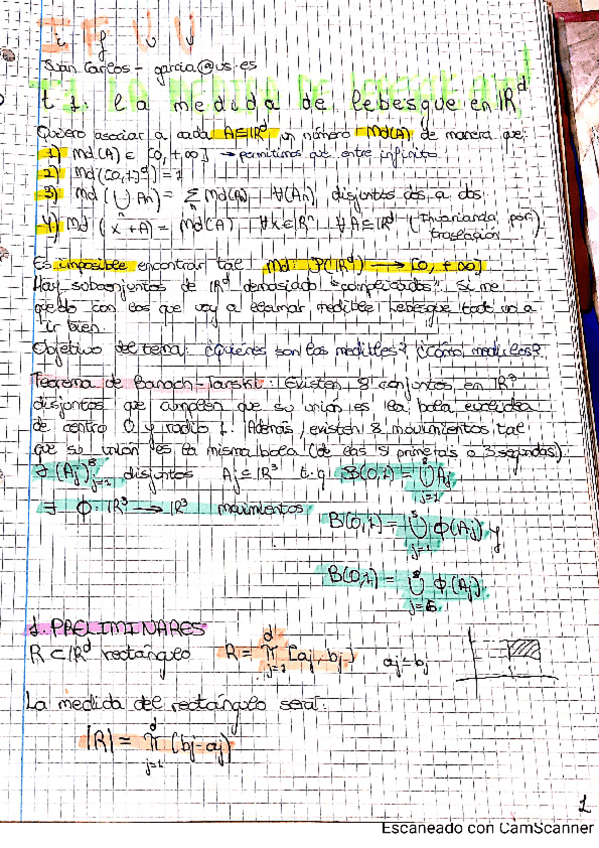 I F V V
Juan Carlos - garcia@us.es
T1: LA MEDIDA DE LEBESGUE EN IRᵈ
t 1: la medida de lebesgue en IRᵈ
Quiero asociar a cada A⊆IRᵈ un número Md(A) de manera que:
1) Md(A) ∈ [0,+∞] → permitimos que entre infinito
2) Md([0,1]ᵈ) = 1
3) Md(⋃ₙ An) = ∑ₙ Md(An) ∀(An)ₙ disjuntos dos a dos
4) Md(x+A) = Md(A) ∀x∈IRⁿ ∀A⊆IRᵈ (Invarianza por
traslación)
Es imposible encontrar tal Md: P(IRᵈ) → [0,+∞]
Hay subconjuntos de IRᵈ demasiado "complicados". Si me
quedo con los que voy a llamar medibles Lebesgue todo va a
ir bien.
Objetivo del tema: ¿Quiénes son los medibles? ¿Cómo medirlos?
Teorema de Banach-Tarski: Existen 8 conjuntos en IR³
disjuntos que cumplen que su unión es la bola euclídea
de centro 0 y radio 1. Además, existen 8 movimientos tal
que su unión es la misma bola (de las 5 primeras o 3 segundas)
∃ (Aj)⁸ⱼ₌₁ disjuntos Aj⊆IR³ t.q B(0,1) = ⋃⁸ⱼ₌₁ Aj
∃ Φ: IR³ → IR³ movimientos B(0,1) = ⋃⁵ⱼ₌₁ Φ(Aj) y
B(0,1) = ⋃⁸ⱼ₌₆ Φ(Aj)
1. PRELIMINARES
R ⊂ IRᵈ rectángulo R = ∏ᵈⱼ₌₁ [aj, bj) aj≤bj
La medida del rectángulo será:
|R| = ∏ᵈⱼ₌₁ (bj-aj)
1
Escaneado con CamScanner